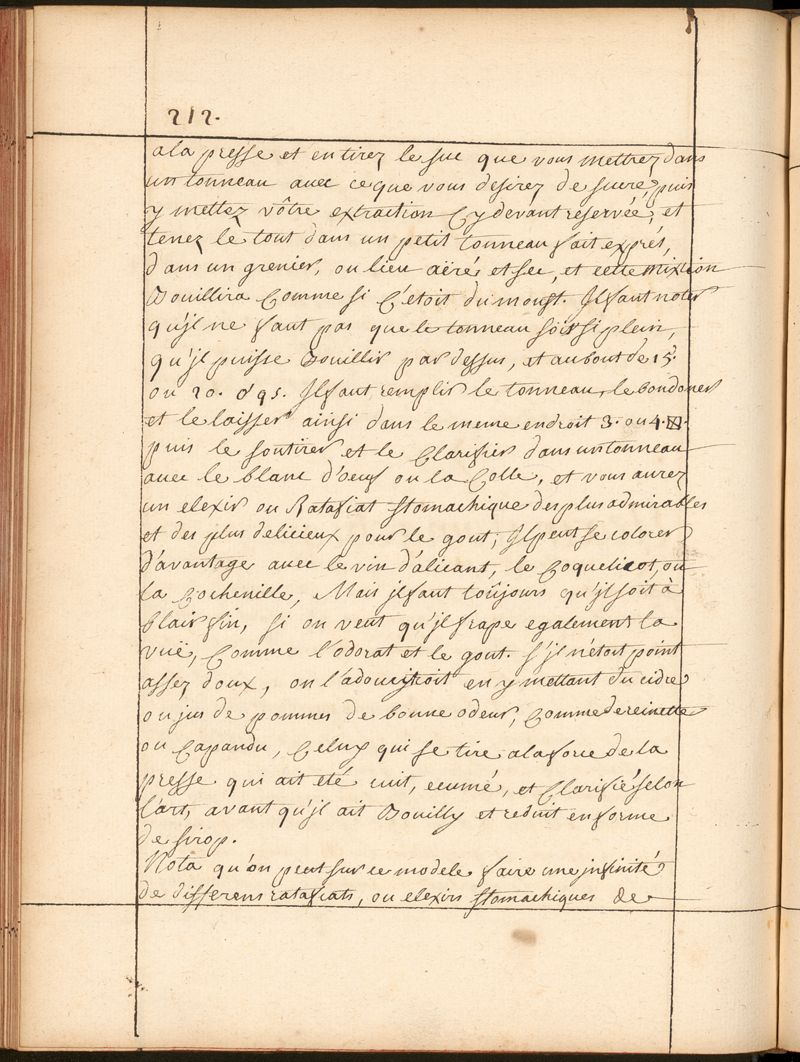 212.
a la presse et en tirez le suc que vous mettrez dans
un tonneau avec ce que vous desirez de sucre, puis
y mettez vôtre extraction Cy devant reservéé, et
tenez le tout dans un petit tonneau fait exprés,
dans un grenier, ou lieu aëré et sec, et cette mixtion
Bouillira Comme si C'etoit du moust. Il faut noter
qu'jl ne faut pas que le tonneau soit si plein,
qu'jl puisse Bouillir par dessus, et au bout de 15.
ou 20. Il faut remplir le tonneau, le bondoner
et le laisser ainsi dans le meme endroit 3. ou 4.
puis le soutirer et le Clarifier dans un tonneau
avec le blanc d'oeuf ou la Colle, et vous aurez
un elexir ou Ratafiat stomachique des plus admirables
et des plus delicieux pour le gout; Il peut se colorer
d'avantage avec le vin d'alicant, le Coquelicot, ou
la Cochenille, Mais jl faut toûjours qu'jl soit à
Clair fin, si on veut qu'jl frape egalement la
vuë, Comme l'odorat et le gout. S'jl n'étoit point
assez doux, on l'adouciroit en y mettant du cidre
ou jus de pommes de bonne odeur, Comme de reinette
ou Capandu, Celuy qui se tire a la force de la
presse qui ait eté cuit, ecumé, et Clarifié selon
l'art, avant qu'jl ait Bouilly et reduit en forme
de sirop.
Nota qu'on peut sur ce modele faire une jnfinité
de differens ratafiats, ou elexirs stomachiques de